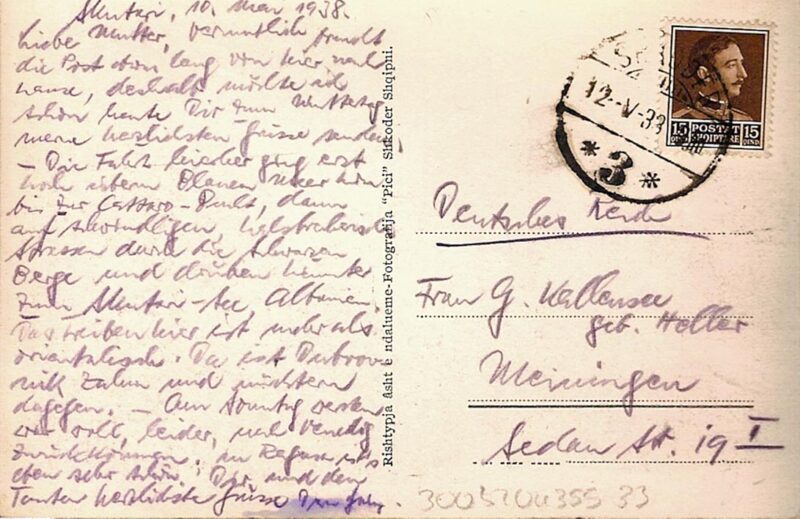 Skutari, 10. Mai 1938.
Liebe Mutter, vermutlich braucht
die Post etwas lang von hier nach
Hause, deshalb möchte ich
schon heute Dir zum Muttertag
meine herzlichsten Grüsse senden
– Die Fahrt hierher ging erst
hoch überm Blauen Meer hin
bis zur Cattaro-Bucht, dann
auf schwindligen, halsbrecherischen
Strassen durch die Schwarzen
Berge und drüben hinunter
zum Skutari-See, Albanien.
Das Treiben hier ist mehr als
orientalisch. Da ist Dubrov-
nik zahm und nüchtern
dagegen. – Am Sonntag werden
wir wohl, leider, nach Venedig
zurückkommen. In Ragusa ist's
eben sehr schön. Dir und den
Tanten herzlichste Grüsse Dein
Rishtypja âsht e ndalueme-Fotografija "Pici" Shkoder Shqipni.
12-V-38
*3*
15 POSTAT 15
QIND SHQIPTARE QIND
Deutsches Reich
Frau G. Kallensee
geb. Heller
Meiningen
Sedan Str. 19 I